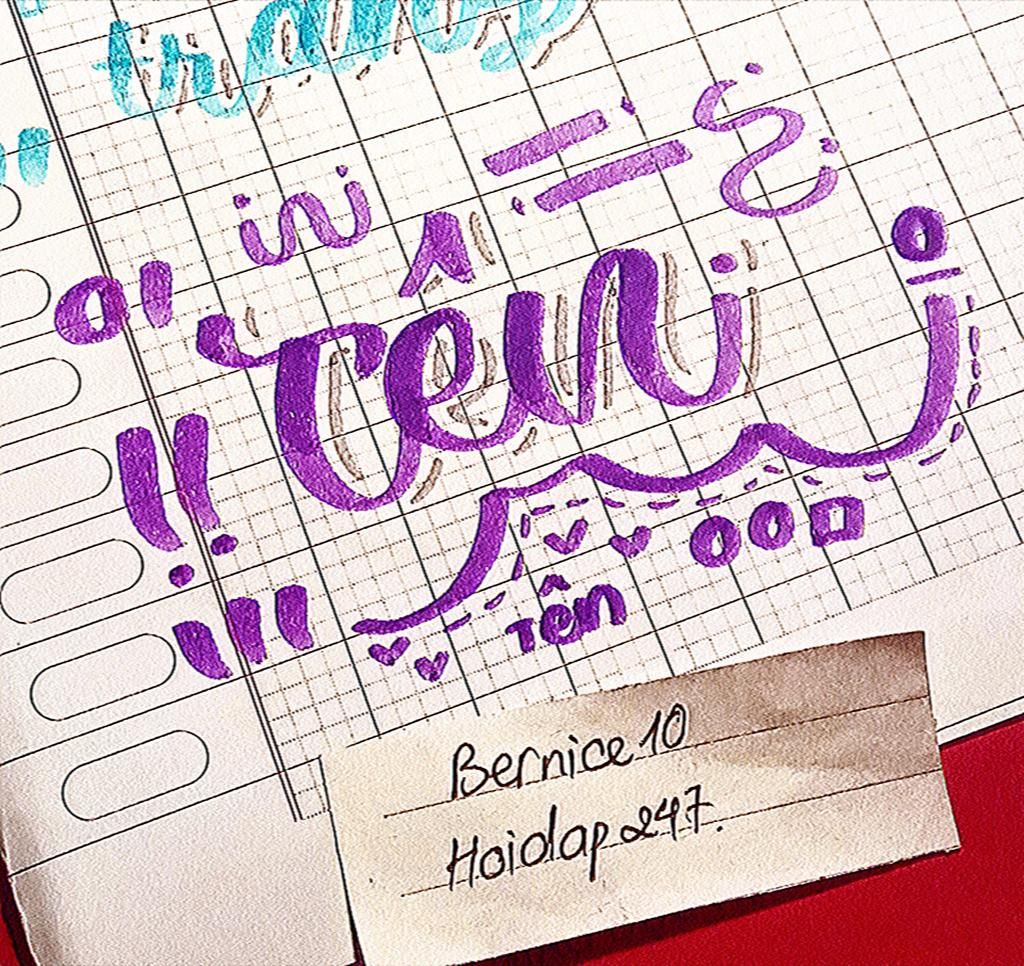 trang
tên
Tên
Bernice 10
Hoidap 247.